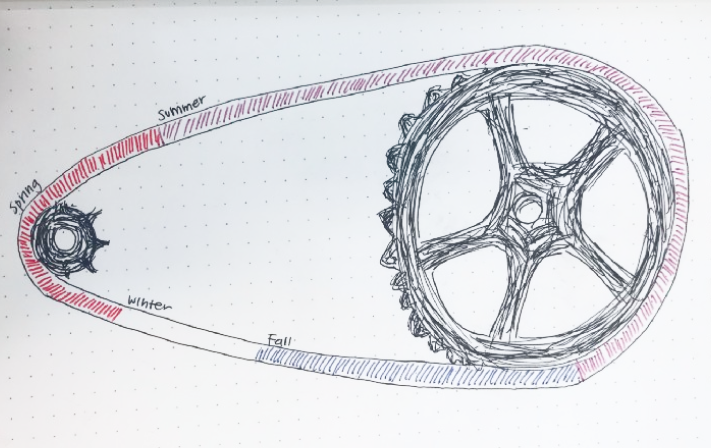 Summer
Spring
Winter
Fall